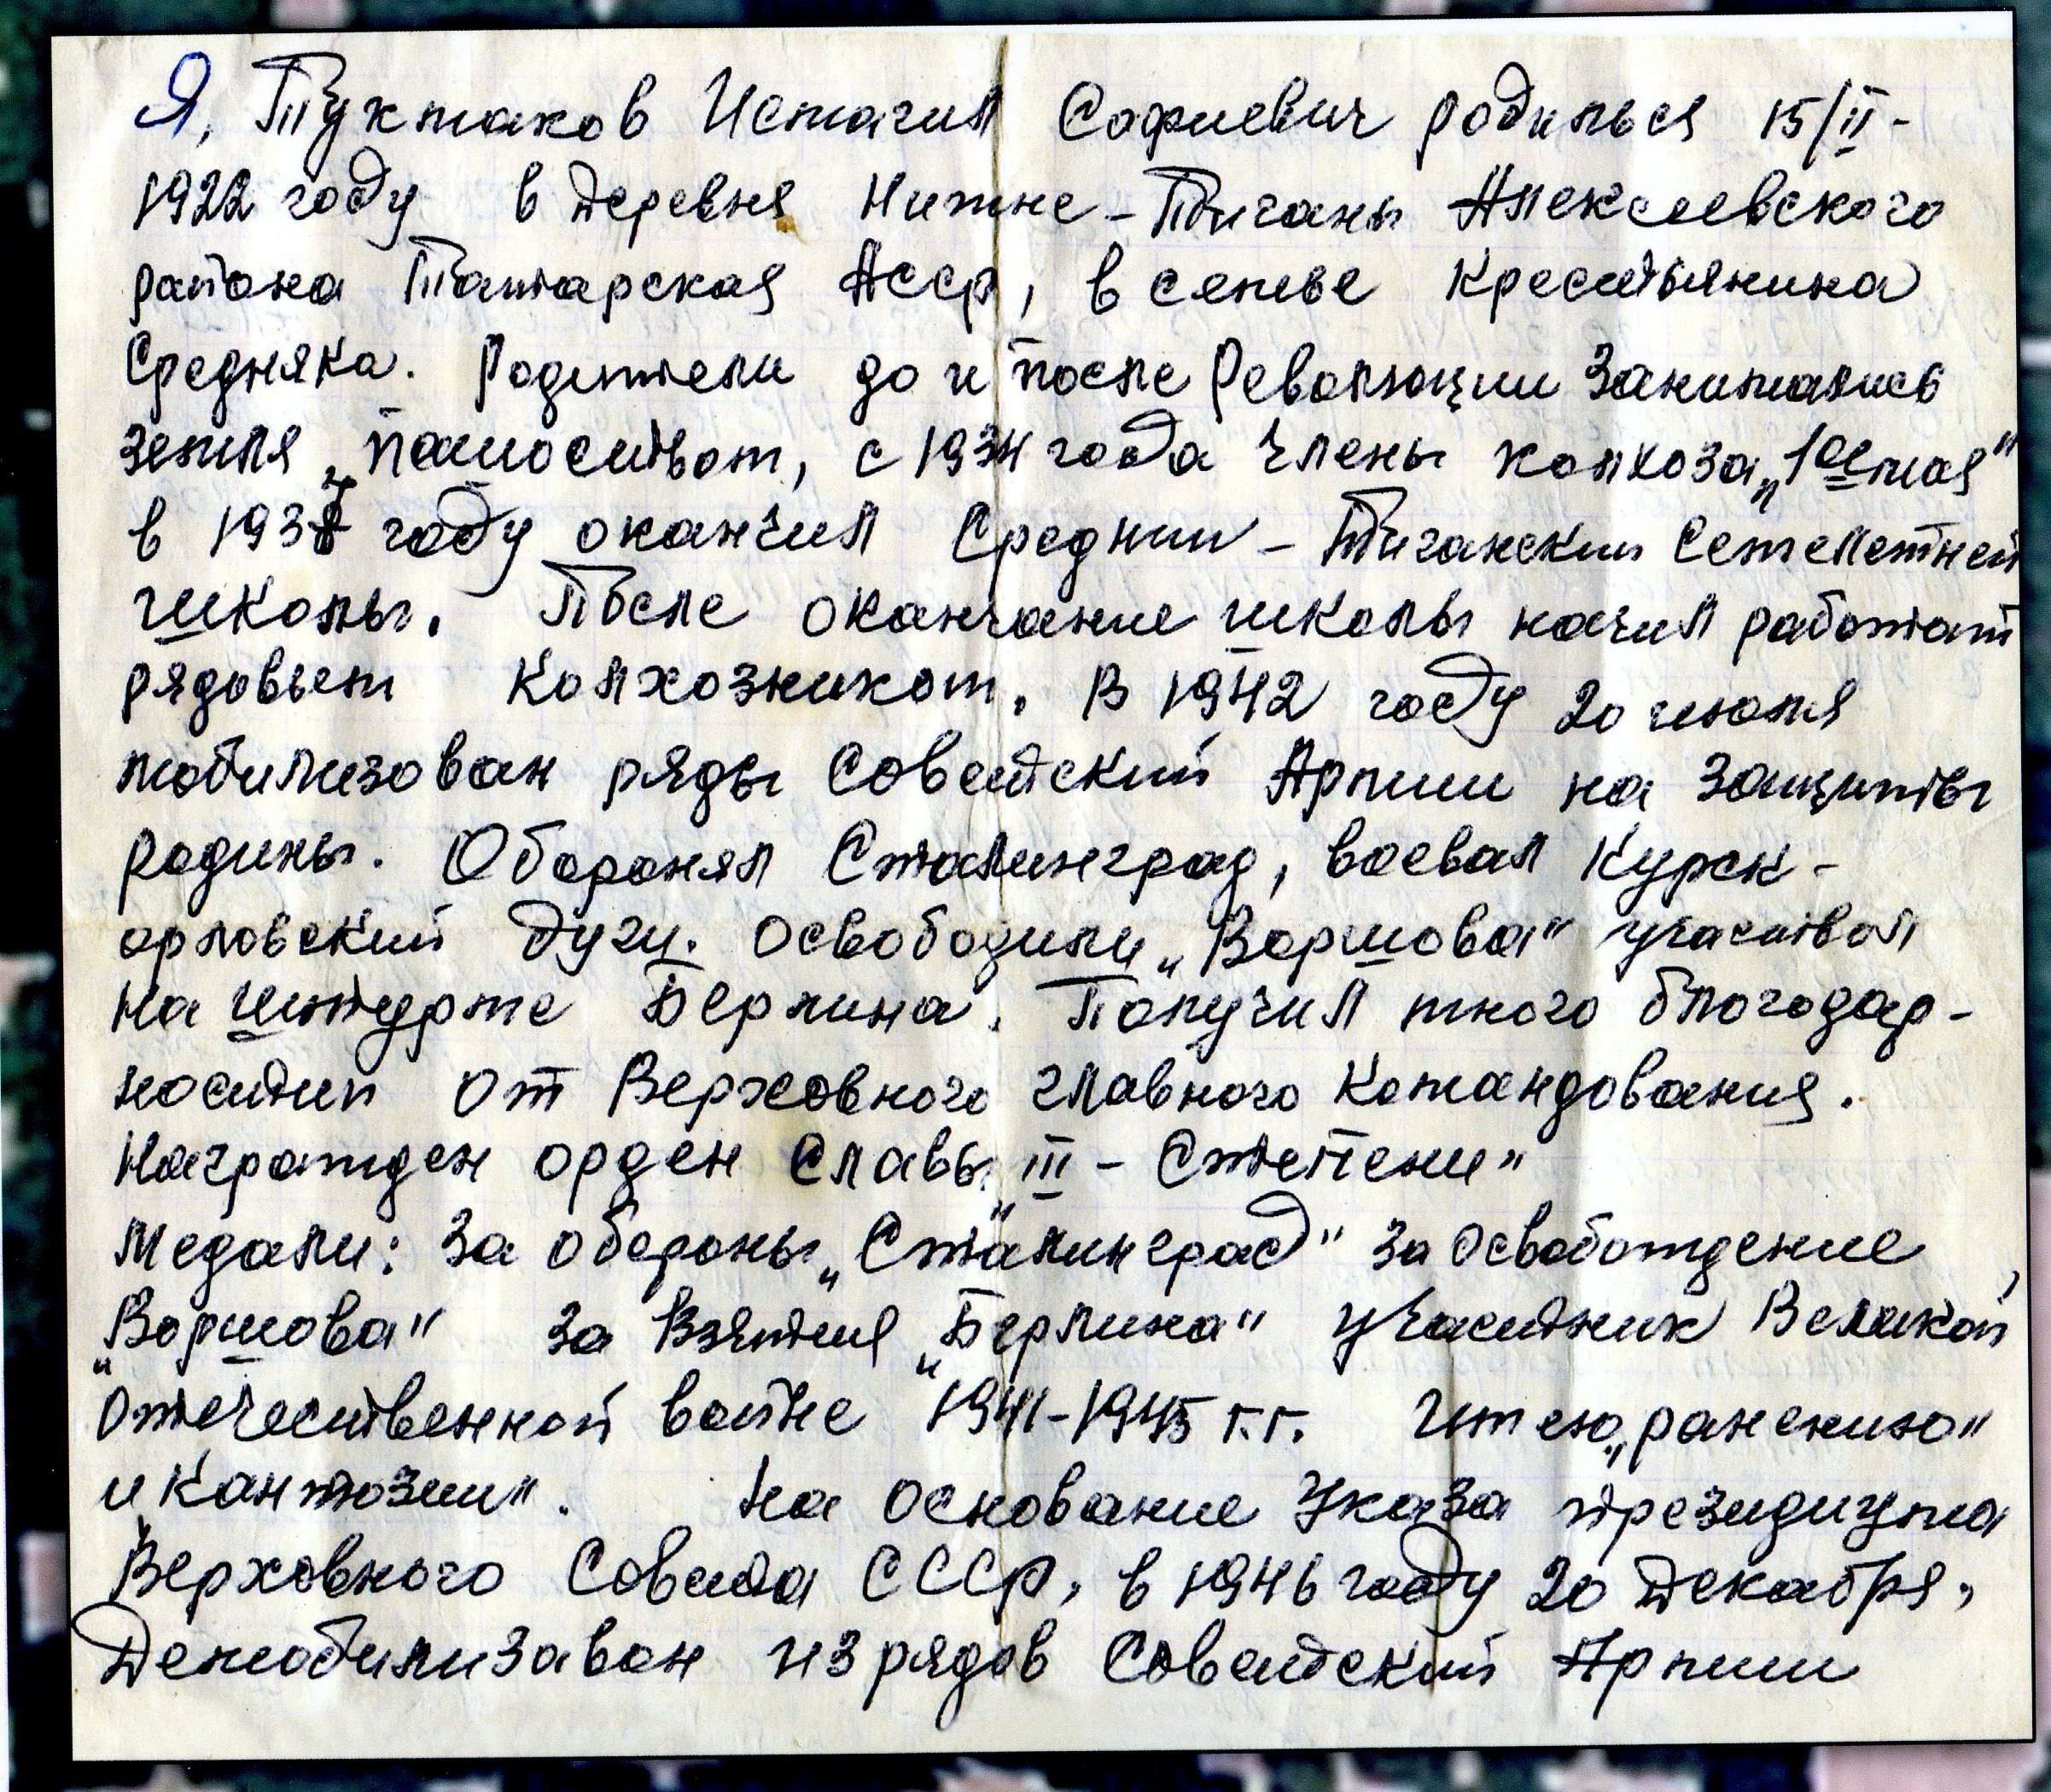 Я, Туктаков Исмагил Софиевич родилься 15/II-
1922 году в деревня Нижне-Тиганы Алексеевского
района Татарская АССР, в семье крестьянина
Средняка. Родители до и после Революции Занимались
земля „пашоством, с 1934 года члены колхоза „1ое мая"
в 1937 году окончил Средний-Тигански Семелетней
школы. После окончание школы начил работат
рядовьем Колхозником. В 1942 году 20 июля
мобилизован ряды Советский Армии на защиты
родины. Оборонял Сталинград, воевал Курск-
орловский дуги. Освободили „Воршова" участвол
на штурме Берлина. Получил много блогодар-
ностии от Верховного главного Командования.
Награжден орден Славы „III-Степени"
Медали: За обороны „Сталинград" За освобождение,
„Воршова" За Взятия „Берлина" участник Великой
Отечественной войне 1941-1945 г.г. Имею „ранению"
и „Кантозии". На основание Указа президиума
Верховного Совета СССР, в 1946 году 20 декабря,
Демобилизавон из рядов Советский Армии